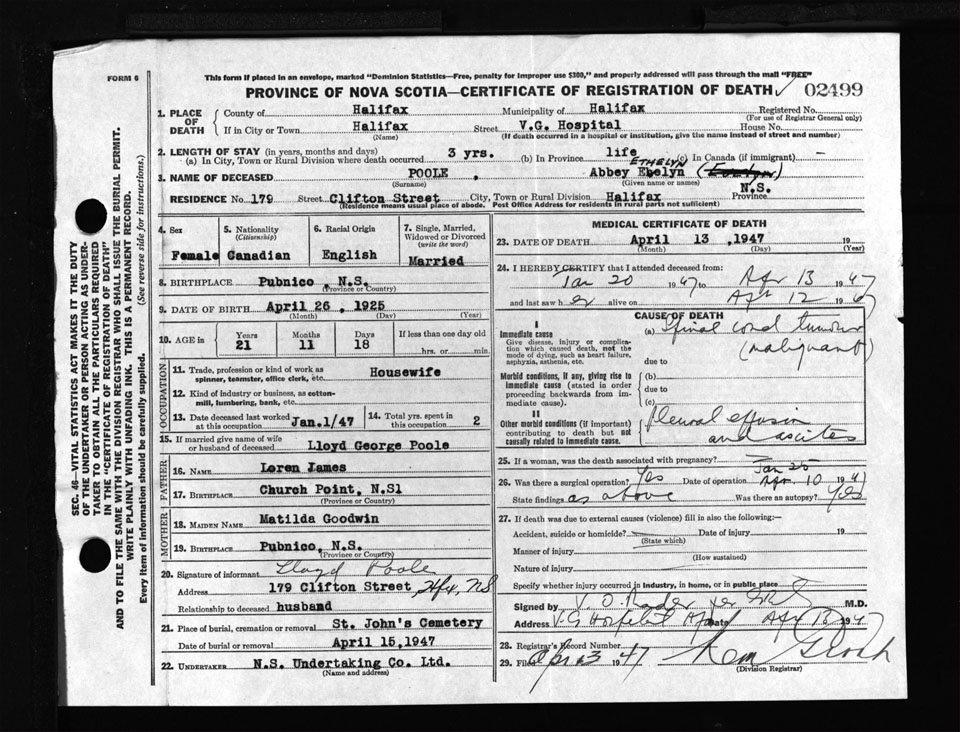 FORM 6
This form if placed in an envelope, marked "Dominion Statistics—Free, penalty for improper use $300," and properly addressed will pass through the mail "FREE"
PROVINCE OF NOVA SCOTIA—CERTIFICATE OF REGISTRATION OF DEATH 02499
1. PLACE OF DEATH
County of Halifax Municipality of Halifax Registered No.
(For use of Registrar General only)
If in City or Town Halifax Street V.G. Hospital House No.
(Name) (If death occurred in a hospital or institution, give the name instead of street and number)
2. LENGTH OF STAY (in years, months and days)
(a) In City, Town or Rural Division where death occurred 3 yrs. (b) In Province life (c) In Canada (if immigrant) —
ETHELYN
3. NAME OF DECEASED POOLE , Abbey Ebelyn (Evelyn)
(Surname) (Given name or names)
RESIDENCE No. 179 Street Clifton Street City, Town or Rural Division Halifax Province N.S.
(Residence means usual place of abode. Post Office Address for residents in rural parts not sufficient)
4. Sex Female
5. Nationality (Citizenship) Canadian
6. Racial Origin English
7. Single, Married, Widowed or Divorced (write the word) Married
8. BIRTHPLACE Pubnico N.S.
(Province or Country)
9. DATE OF BIRTH April 26 , 1925
(Month) (Day) (Year)
10. AGE in Years 21 Months 11 Days 18 If less than one day old hrs. or min.
OCCUPATION
11. Trade, profession or kind of work as spinner, teamster, office clerk, etc. Housewife
12. Kind of industry or business, as cotton-mill, lumbering, bank, etc.
13. Date deceased last worked at this occupation Jan.1/47
14. Total yrs. spent in this occupation 2
15. If married give name of wife or husband of deceased Lloyd George Poole
FATHER
16. NAME Loren James
17. BIRTHPLACE Church Point, N.S1
MOTHER
18. MAIDEN NAME Matilda Goodwin
19. BIRTHPLACE Pubnico, N.S.
(Province or Country)
20. Signature of informant Lloyd Poole
Address 179 Clifton Street, Hfx, NS
Relationship to deceased husband
21. Place of burial, cremation or removal St. John's Cemetery
Date of burial or removal April 15,1947
22. UNDERTAKER N.S. Undertaking Co. Ltd.
(Name and address)
MEDICAL CERTIFICATE OF DEATH
23. DATE OF DEATH April 13 ,1947 19
(Month) (Day) (Year)
24. I HEREBY CERTIFY that I attended deceased from:
Jan 20 1947 to Apr 13 1947
and last saw her alive on Apr 12 1947
CAUSE OF DEATH
I
Immediate cause
Give disease, injury or complication which caused death, not the mode of dying, such as heart failure, asphyxia, asthenia, etc.
(a) Spinal cord tumour
(malignant)
due to
Morbid conditions, if any, giving rise to immediate cause (stated in order proceeding backwards from immediate cause).
(b)
due to
(c)
II
Other morbid conditions (if important) contributing to death but not causally related to immediate cause.
Pleural effusion
and ascites
25. If a woman, was the death associated with pregnancy?
Jan 25
26. Was there a surgical operation? Yes Date of operation Apr. 10 1947
State findings as above Was there an autopsy? Yes
27. If death was due to external causes (violence) fill in also the following:—
Accident, suicide or homicide? Date of injury 19
(State which)
Manner of injury
(How sustained)
Nature of injury
Specify whether injury occurred in industry, in home, or in public place
Signed by M.D.
Address V.G Hospital Date Apr 13 1947
28. Registrar's Record Number
29. Filed 1947
(Division Registrar)
SEC. 46—VITAL STATISTICS ACT MAKES IT THE DUTY
OF THE UNDERTAKER OR PERSON ACTING AS UNDER-
TAKER TO OBTAIN ALL THE PARTICULARS REQUIRED
IN THE "CERTIFICATE OF REGISTRATION OF DEATH"
AND TO FILE THE SAME WITH THE DIVISION REGISTRAR WHO SHALL ISSUE THE BURIAL PERMIT.
WRITE PLAINLY WITH UNFADING INK. THIS IS A PERMANENT RECORD.
Every item of Information should be carefully supplied. (See reverse side for instructions.)